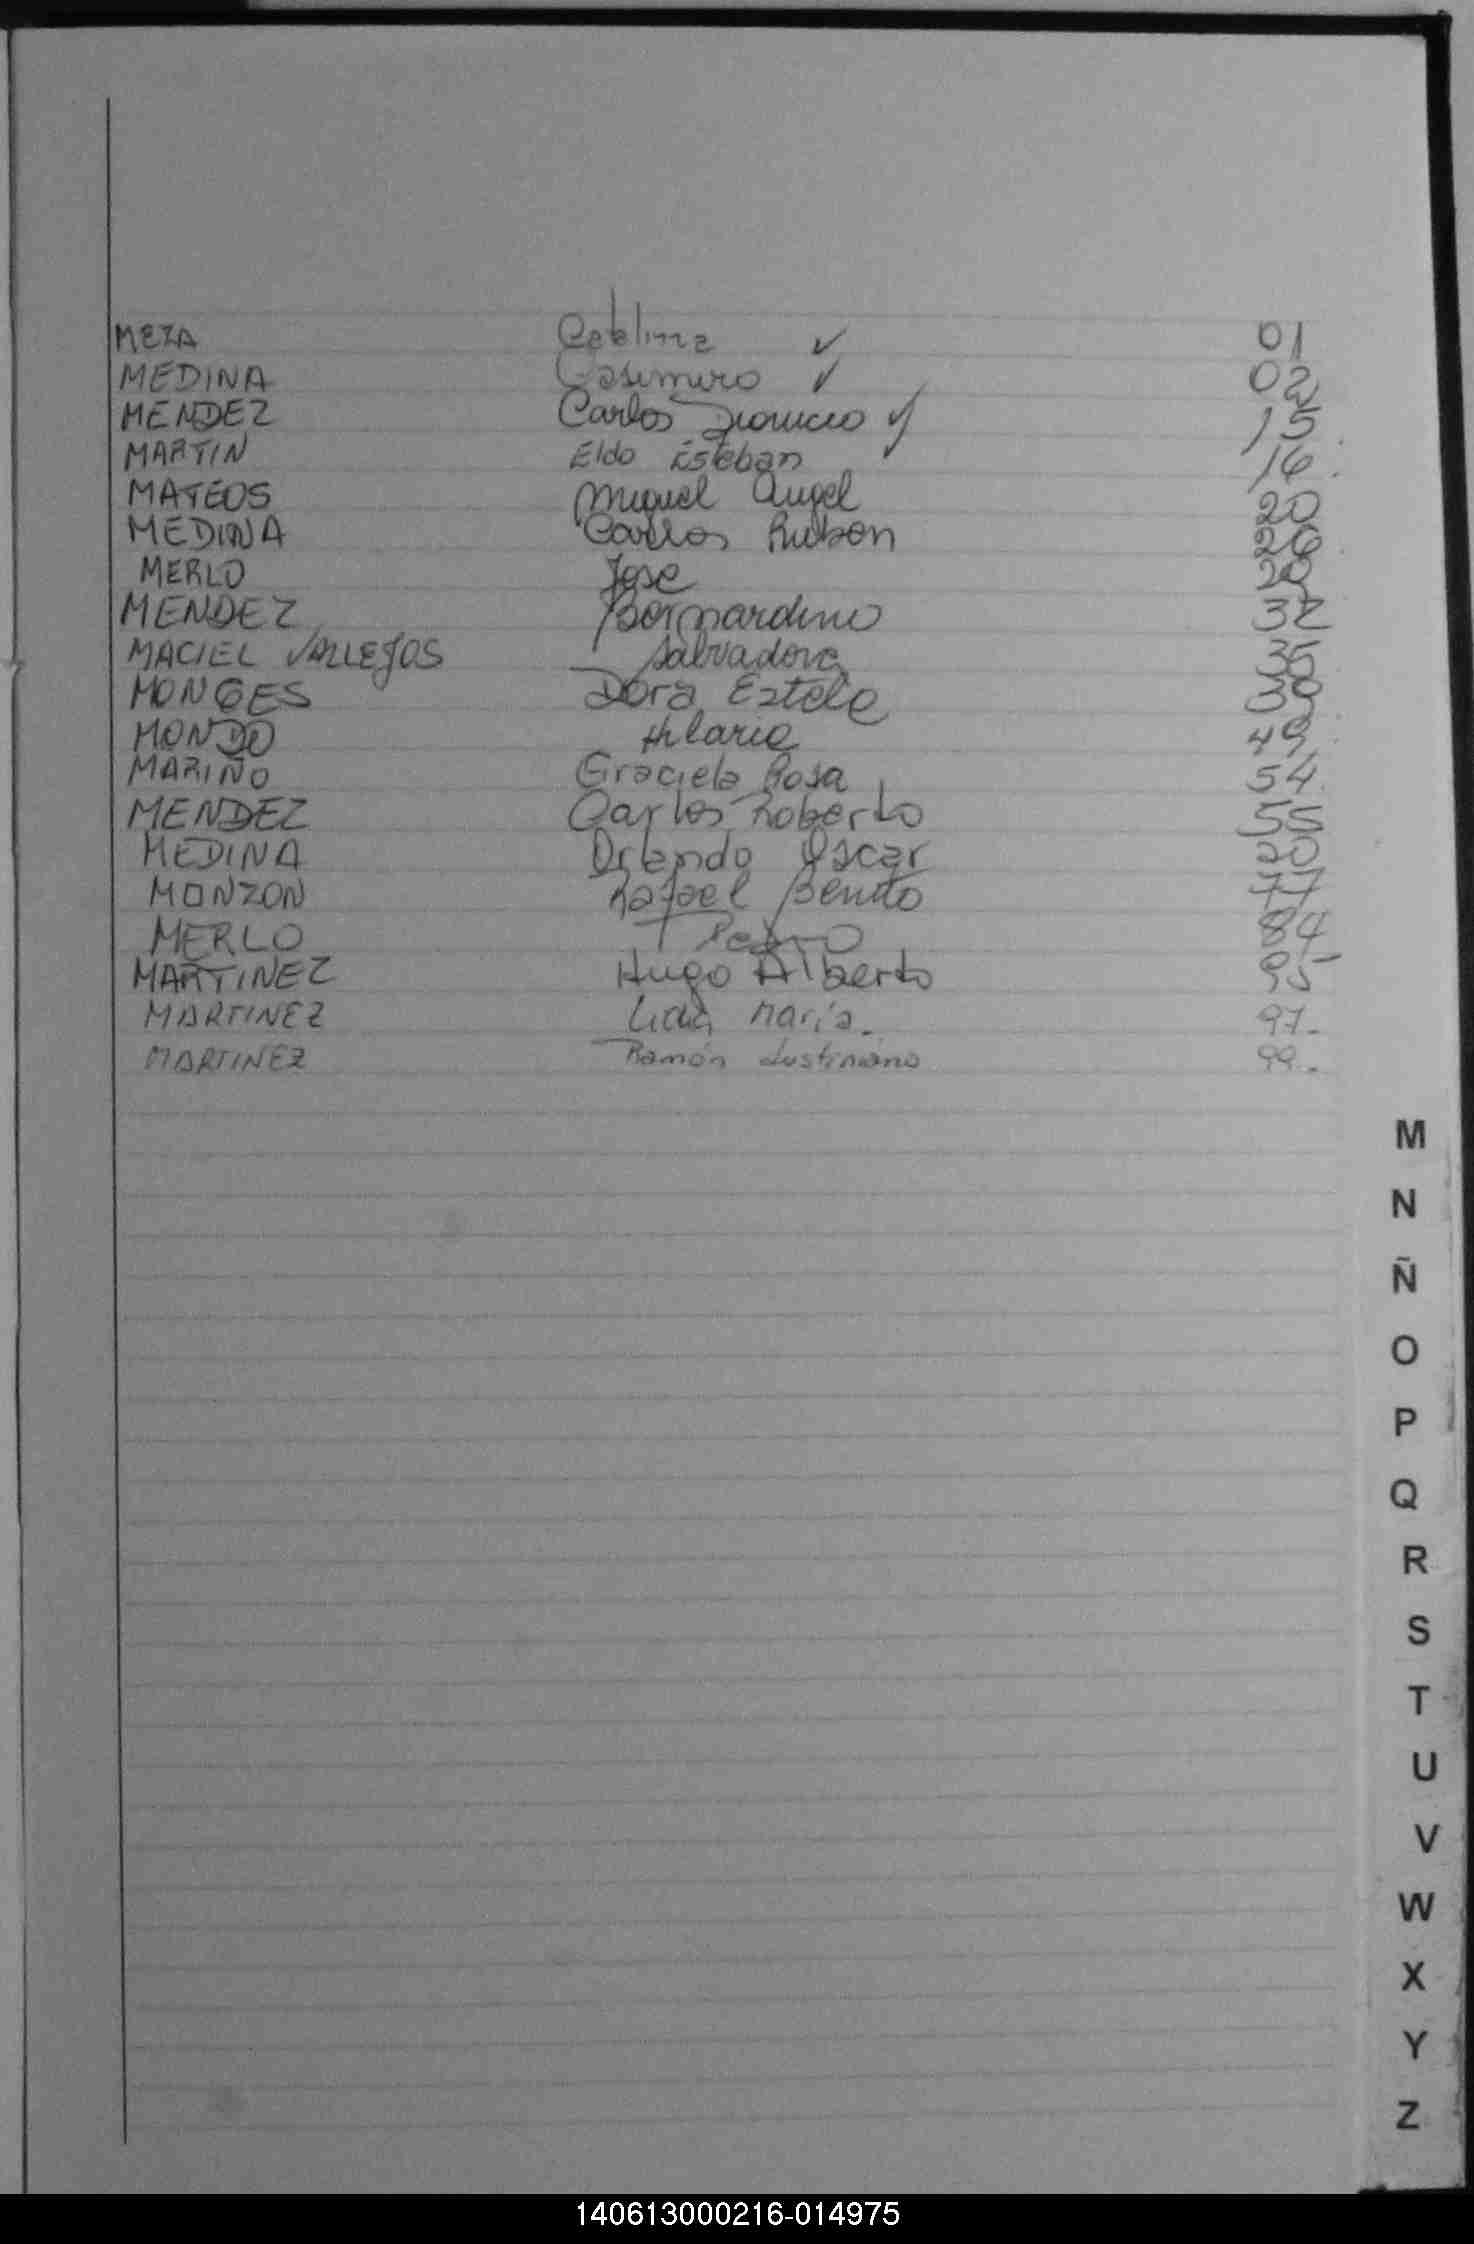 MEZA Catalina ✓ 01
MEDINA Casimiro ✓ 02
MENDEZ Carlos Dionicio ✓ 15
MARTIN Eldo Esteban ✓ 16.
MATEOS Miguel Angel 20
MEDINA Carlos Ruben 26
MERLO Jose 28
MENDEZ Bernardino 32
MACIEL VALLEJOS Salvadora 35
MONGES Dora Estela 39
MONDO Hilaria 49
MARIÑO Graciela Rosa 54
MENDEZ Carlos Roberto 55
MEDINA Orlando Oscar 20
MONZON Rafael Benito 77
MERLO Pedro 84
MARTINEZ Hugo Alberto 95
MARTINEZ Lidia María. 97.
MARTINEZ Ramón Justiniano 99.
M
N
Ñ
O
P
Q
R
S
T
U
V
W
X
Y
Z
140613000216-014975